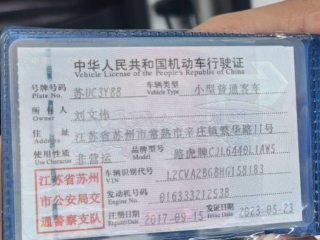 中华人民共和国机动车行驶证
Vehicle License of the People's Republic of China
号牌号码 Plate No. 苏UC3Y88 车辆类型 Vehicle Type 小型普通客车
所有人 Owner 刘文伟
住址 Address 江苏省苏州市常熟市辛庄镇繁华路11号
使用性质 Use Character 非营运 品牌型号 Model 路虎牌CJL6440L1AW5
江苏省苏州市公安局交通警察支队
车辆识别代号 VIN L2CVA2BG8HG158183
发动机号码 Engine No. 016333212538
注册日期 2017-09-15 发证日期 2023-05-23